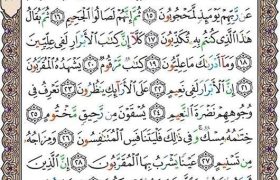 عَن رَّبِّهِمْ يَوْمَئِذٍ لَّمَحْجُوبُونَ ١٥ ثُمَّ إِنَّهُمْ لَصَالُوا۟ ٱلْجَحِيمِ ١٦ ثُمَّ يُقَالُ
هَٰذَا ٱلَّذِى كُنتُم بِهِۦ تُكَذِّبُونَ ١٧ كَلَّآ إِنَّ كِتَٰبَ ٱلْأَبْرَارِ لَفِى عِلِّيِّينَ
١٨ وَمَآ أَدْرَىٰكَ مَا عِلِّيُّونَ ١٩ كِتَٰبٌ مَّرْقُومٌ ٢٠ يَشْهَدُهُ ٱلْمُقَرَّبُونَ
٢١ إِنَّ ٱلْأَبْرَارَ لَفِى نَعِيمٍ ٢٢ عَلَى ٱلْأَرَآئِكِ يَنظُرُونَ ٢٣ تَعْرِفُ فِى
وُجُوهِهِمْ نَضْرَةَ ٱلنَّعِيمِ ٢٤ يُسْقَوْنَ مِن رَّحِيقٍ مَّخْتُومٍ ٢٥
خِتَٰمُهُۥ مِسْكٌ وَفِى ذَٰلِكَ فَلْيَتَنَافَسِ ٱلْمُتَنَٰفِسُونَ ٢٦ وَمِزَاجُهُۥ
مِن تَسْنِيمٍ ٢٧ عَيْنًا يَشْرَبُ بِهَا ٱلْمُقَرَّبُونَ ٢٨ إِنَّ ٱلَّذِينَ